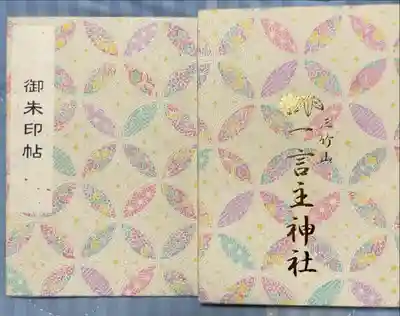 御朱印帖
三竹山
一言主神社